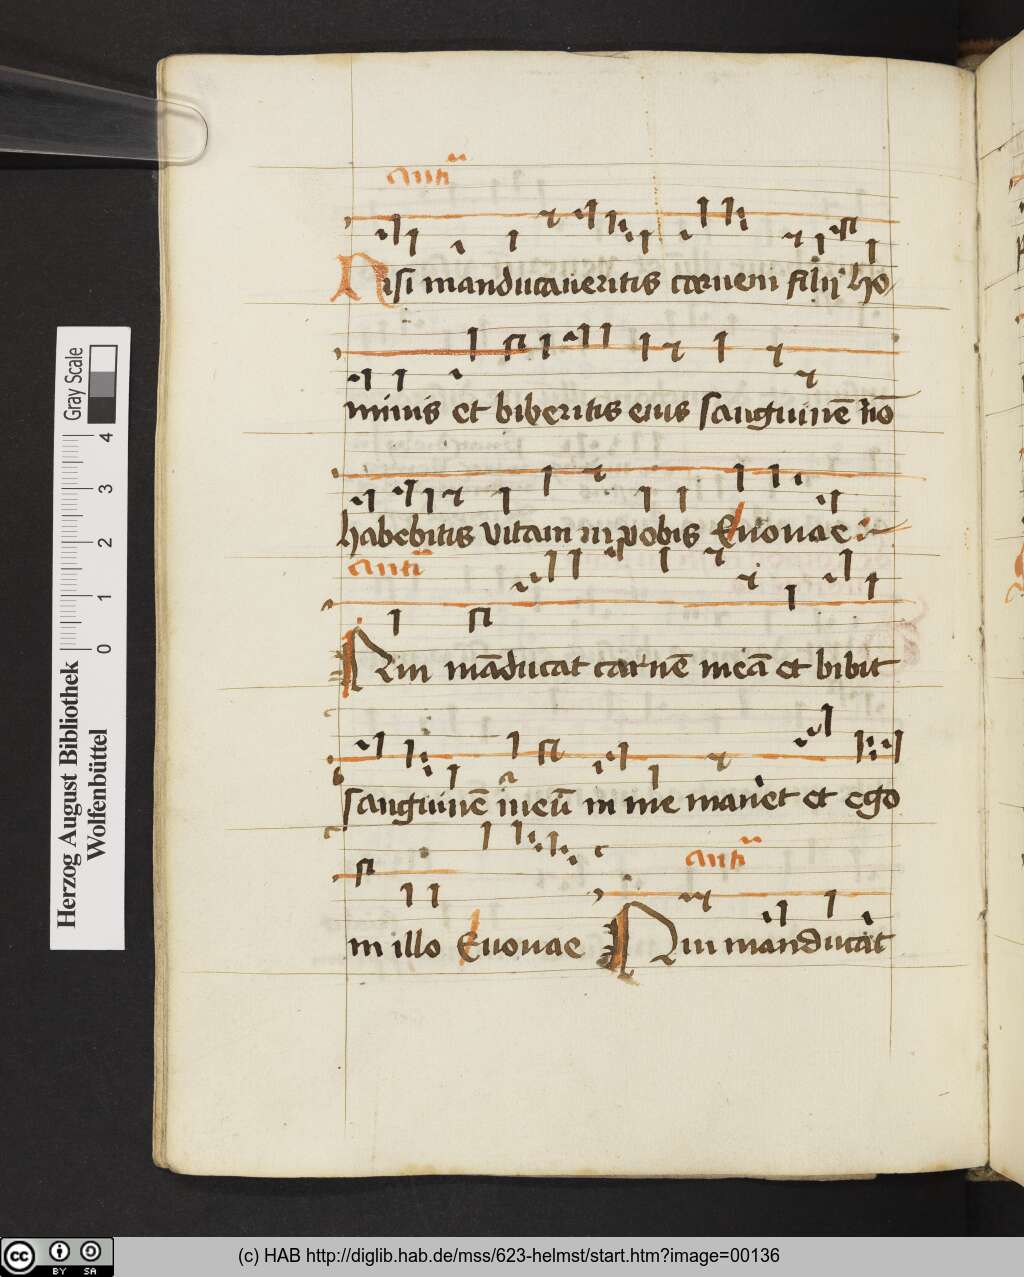 antiᵃ
Nisi manducaueritis carnem filij ho
minis et biberitis eius sanguinē nō
habebitis vitam in vobis Euouae
antiᵃ
Qui māducat carnē meā et bibit
sanguinē meū in me manet et ego
antiᵃ
in illo Euouae Qui manducat
Gray Scale
0 1 2 3 4
Herzog August Bibliothek
Wolfenbüttel
cc BY SA
(c) HAB http://diglib.hab.de/mss/623-helmst/start.htm?image=00136